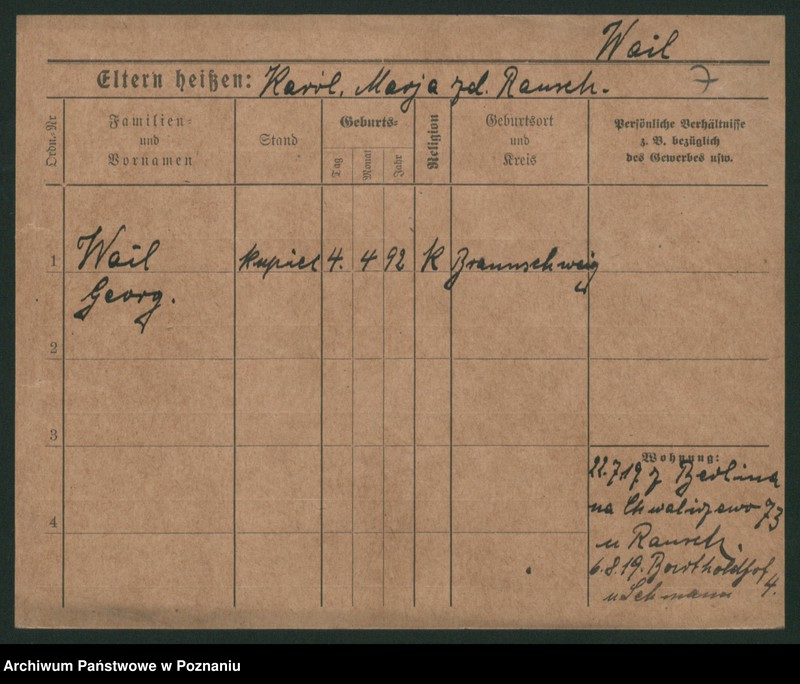 Wail
Eltern heißen: Karol, Marja zd. Rausch.
Ordn.-Nr
Familien-
und
Vornamen
Stand
Geburts-
Tag
Monat
Jahr
Religion
Geburtsort
und
Kreis
Persönliche Verhältnisse
z. B. bezüglich
des Gewerbes usw.
1
Wail kupiec 4. 4 92 K Braunschweig
Georg.
2
3
4
Wohnung:
22.7.19 z Berlina
na Chwaliszewo 73
u Rausch.
6.8.19. Berthold
4.
Archiwum Państwowe w Poznaniu